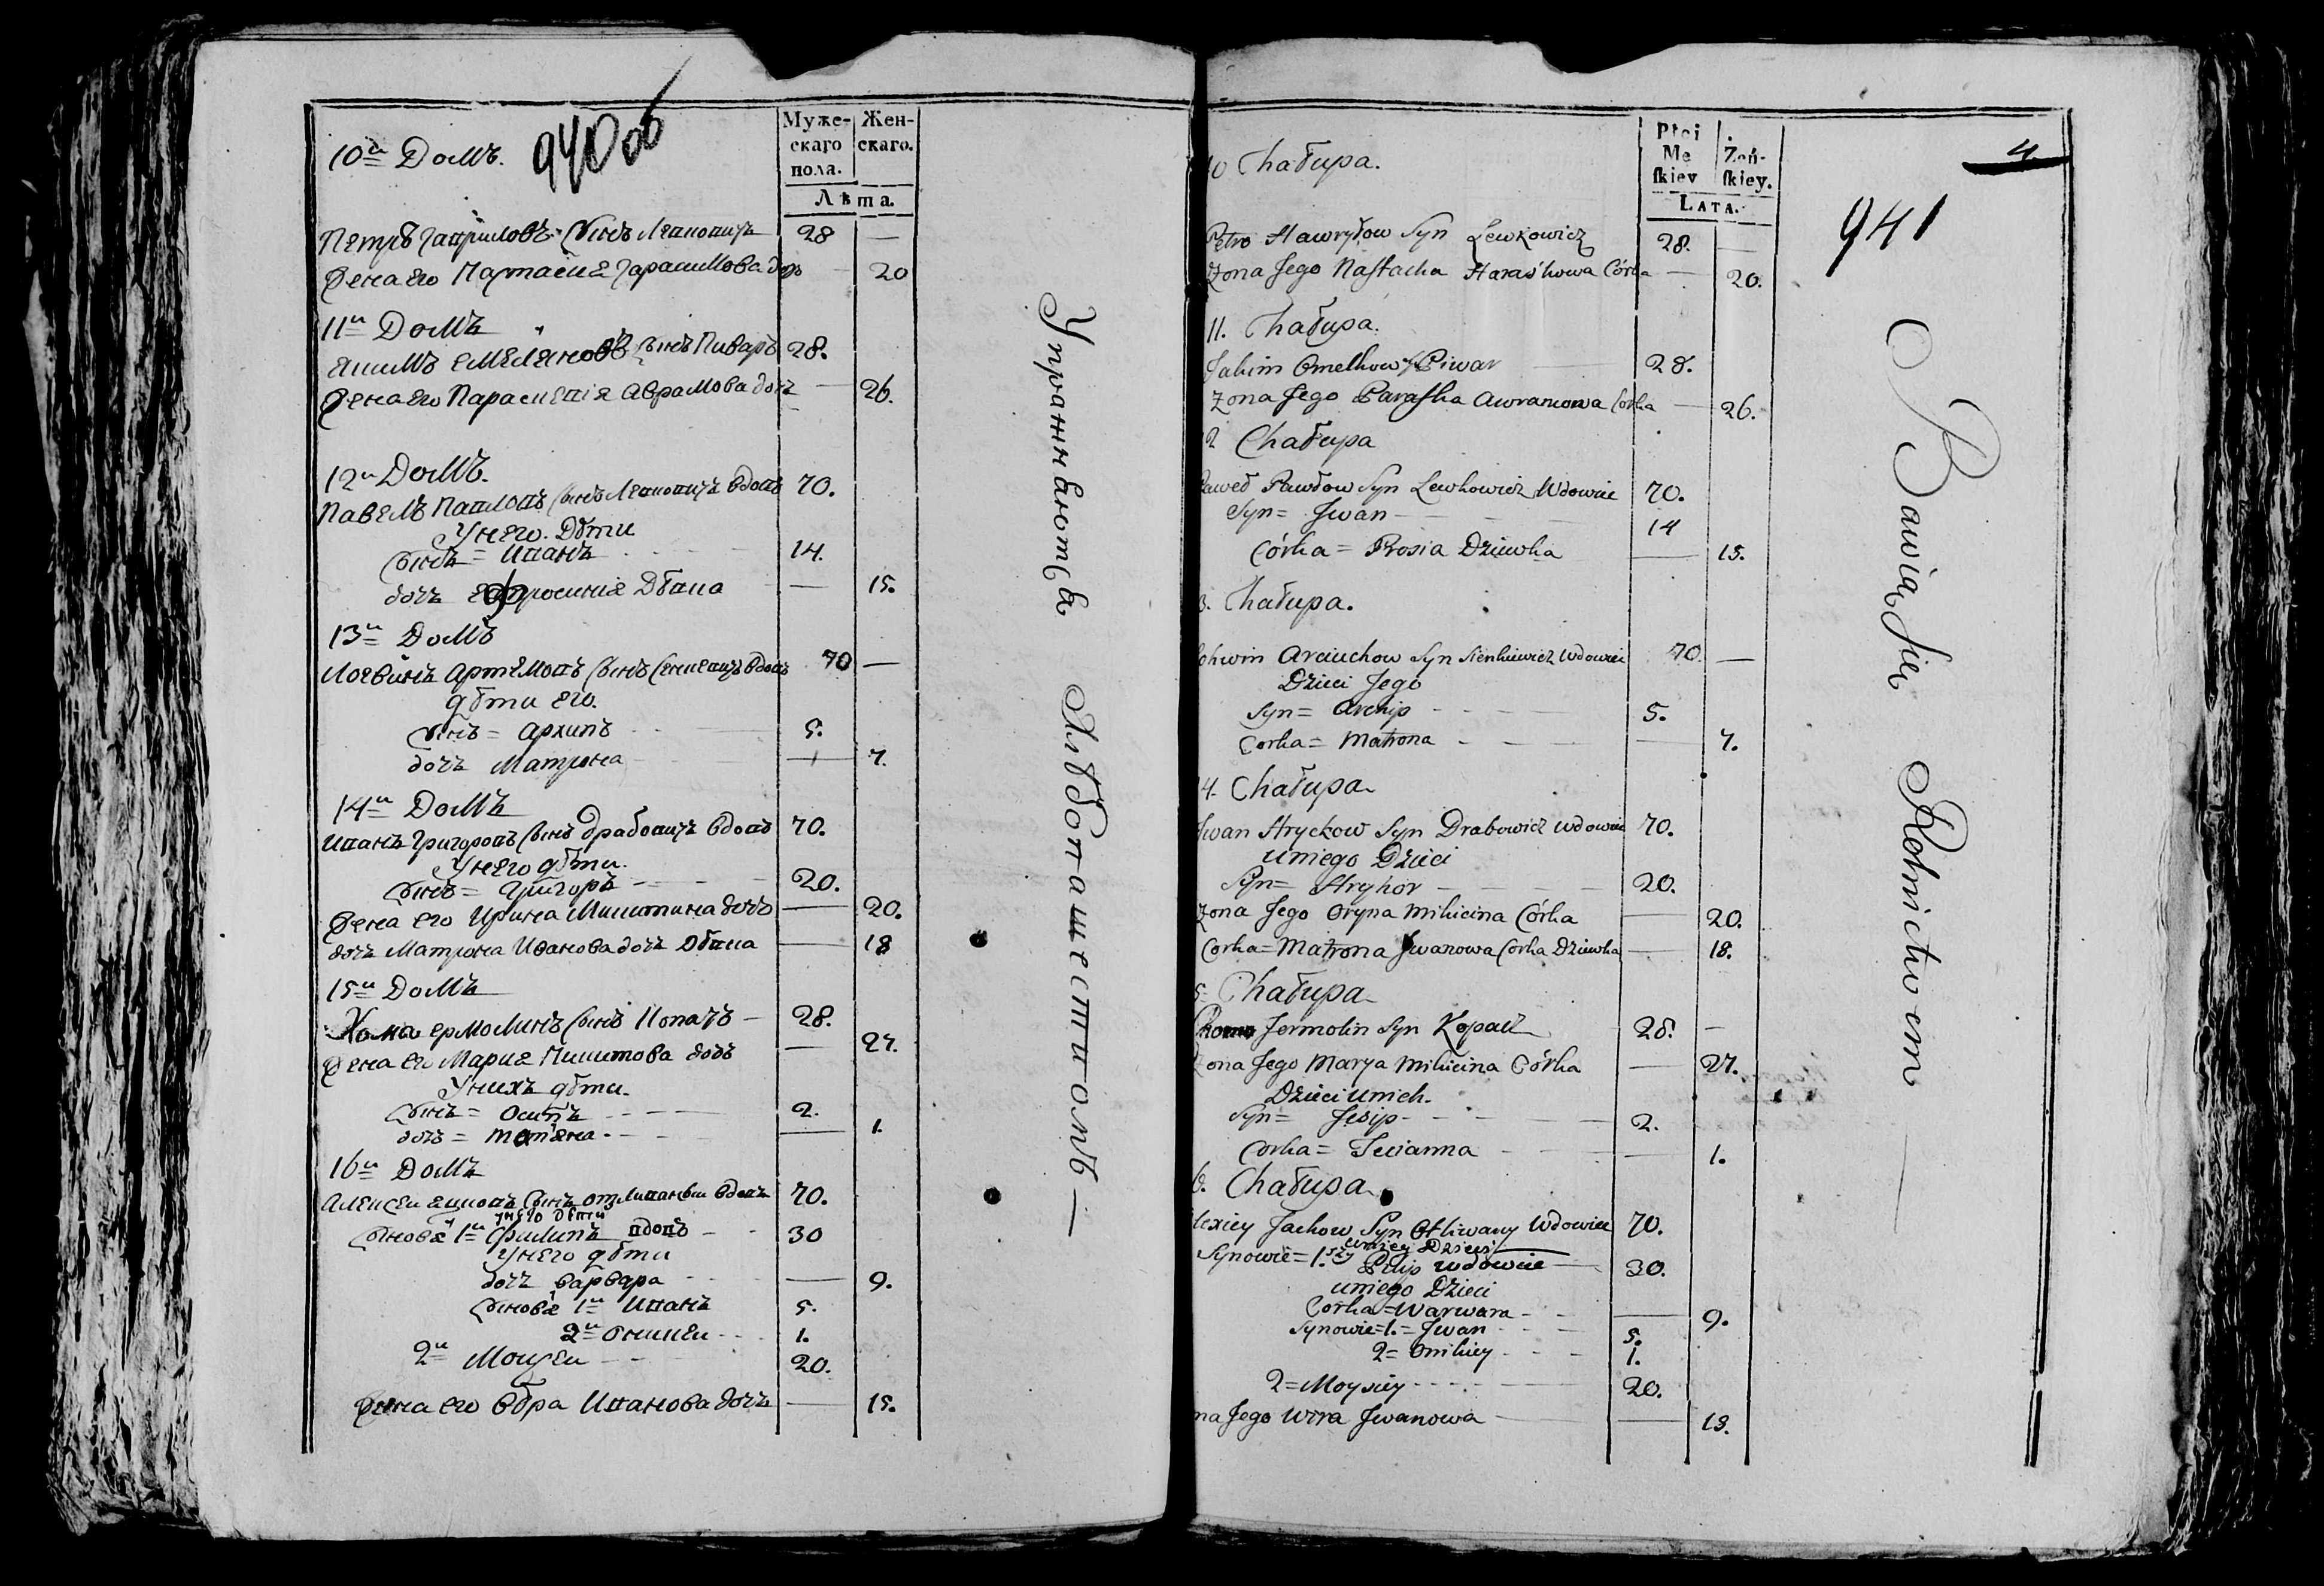 940 об
10й Домъ.
Муже-
скаго
пола.
Жен-
скаго.
Лѣта.
Петръ Гаприловъ Сынъ Лепкопичъ 28 —
Жена его Настасия Гарасимова дочь — 20
11й Домъ
Якимъ Емеляновъ Сынъ Пиваръ 28.
Жена его Параскепія Аврамова дочь — 26.
12й Домъ.
Павелъ Паплопъ Сынъ Лепкопичъ вдопъ 70.
У него Дѣти
Сынъ = Ипанъ 14.
дочь Ефросиния Дѣпка — 15.
13й Домъ
Логвинъ Артемопъ Сынъ Сенкепичъ вдопъ 70 —
дѣти его.
Сынъ = Архипъ 5.
дочь Матрона — 7.
14й Домъ
Ипанъ Григоропъ Сынъ Драбопичъ вдопъ 70.
У него дѣти.
Сынъ = Григоръ 20.
Жена его Ирина Микитина дочь — 20.
дочь Матрона Иванова дочь Дѣпка — 18
15й Домъ
Хома Ермолинъ Сынъ Копачъ — 28.
Жена его Мария Микитова дочь — 27.
У нихъ дѣти.
Сынъ = Осипъ 2.
дочь = Татяна — 1.
16й Домъ
Алексеи Яцкопъ Сынъ вдопъ 70.
у него дѣти
Сыновя 1й Филипъ пдопъ 30
У него дѣти
дочь Варвара — 9.
Сыновя 1й Ипанъ 5.
2й Оникеи 1.
2й Моисеи 20.
Жена его Вѣра Ипанова дочь — 15.
Упражняются Хлѣбопашестполъ —
4
941
10 Chałupa.
Płci
Mę
skiey
Żeń-
skiey.
LATA.
Petro Hawryłow Syn Lewkowicz 28. —
Żona Jego Nastacha Haraśkowa Córka — 20.
11. Chałupa.
Jakim Omelkow S. Piwar 28.
Żona Jego Paraska Awramowa Corka — 26.
2 Chałupa
Paweł Pawłow Syn Lewkowicz Wdowiec 70.
Syn = Jwan 14
Córka = Prosia Dziewka — 15.
3. Chałupa.
Lohwin Arciuchow Syn Sienkiewicz Wdowiec 70. —
Dzieci Jego
Syn = Archip 5.
Corka = Matrona — 7.
4. Chałupa
Jwan Hryckow Syn Drabowicz Wdowiec 70.
U niego Dzieci
Syn = Hryhor 20.
Żona Jego Oryna Mikicina Córka — 20.
Corka = Matrona Jwanowa Corka Dziewka — 18.
5 Chałupa
Choma Jermolin Syn Kopacz 28. —
Żona Jego Marya Mikicina Córka — 27.
Dzieci U nich.
Syn = Josip 2.
Corka = Tecianna — 1.
6. Chałupa
Alexiey Jackow Syn Otliwany Wdowiec 70.
U niey Dzieci
Synowie = 1.szy Pilip wdowiec 30.
U niego Dzieci
Córka = Warwara — 9.
Synowie = 1. = Jwan 5.
2 = Onikiey 1.
2 = Moysiey 20.
na Jego Wira Jwanowa — 15.
Bawią Się Rolnictwem —